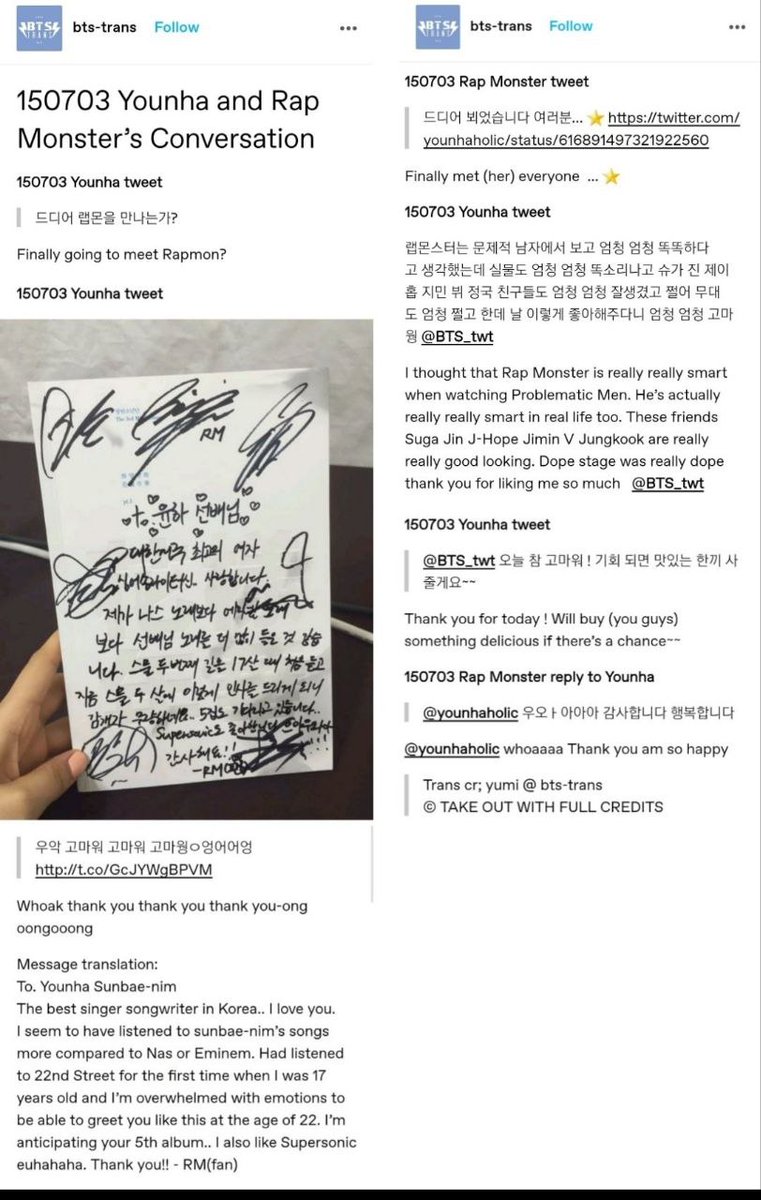 BTS
TRANS
bts-trans Follow
150703 Younha and Rap
Monster’s Conversation
150703 Younha tweet
드디어 랩몬을 만나는가?
Finally going to meet Rapmon?
150703 Younha tweet
RM
to. 윤하 선배님
대한민국 최고의 여자
싱어송라이터신.. 사랑합니다.
제가 나스 노래보다
보다 선배님 노래를 더 많이 들은 것 같습
니다. 스물 두번째 길은 17살 때 처음 듣고
지금 스물 두 살에 이렇게 인사를 드리게 되니
5집도 기다리고 있습니다..
Supersonic도 좋아합니다
감사해요!!
-RM
우악 고마워 고마워 고마웡ㅇ엉어어엉
http://t.co/GcJYWgBPVM
Whoak thank you thank you thank you-ong
oongooong
Message translation:
To. Younha Sunbae-nim
The best singer songwriter in Korea.. I love you.
I seem to have listened to sunbae-nim’s songs
more compared to Nas or Eminem. Had listened
to 22nd Street for the first time when I was 17
years old and I’m overwhelmed with emotions to
be able to greet you like this at the age of 22. I’m
anticipating your 5th album.. I also like Supersonic
euhahaha. Thank you!! - RM(fan)
BTS
TRANS
bts-trans Follow
150703 Rap Monster tweet
드디어 뵈었습니다 여러분... ⭐ https://twitter.com/
younhaholic/status/616891497321922560
Finally met (her) everyone ... ⭐
150703 Younha tweet
랩몬스터는 문제적 남자에서 보고 엄청 엄청 똑똑하다
고 생각했는데 실물도 엄청 엄청 똑소리나고 슈가 진 제이
홉 지민 뷔 정국 친구들도 엄청 엄청 잘생겼고 쩔어 무대
도 엄청 쩔고 한데 날 이렇게 좋아해주다니 엄청 엄청 고마
웡 @BTS_twt
I thought that Rap Monster is really really smart
when watching Problematic Men. He’s actually
really really smart in real life too. These friends
Suga Jin J-Hope Jimin V Jungkook are really
really good looking. Dope stage was really dope
thank you for liking me so much @BTS_twt
150703 Younha tweet
@BTS_twt 오늘 참 고마워 ! 기회 되면 맛있는 한끼 사
줄게요~~
Thank you for today ! Will buy (you guys)
something delicious if there’s a chance~~
150703 Rap Monster reply to Younha
@younhaholic 우오ㅏ아아아 감사합니다 행복합니다
@younhaholic whoaaaa Thank you am so happy
Trans cr; yumi @ bts-trans
© TAKE OUT WITH FULL CREDITS